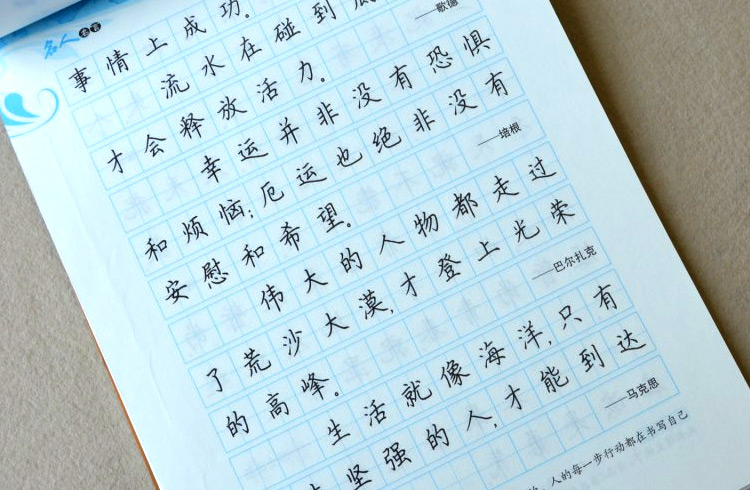 名人名言
事情上成功。
——歌德
流水在碰到
才会释放活力。
幸运并非没有恐惧
和烦恼；厄运也绝非没有
——培根
安慰和希望。
伟大的人物都走过
了荒沙大漠，才登上光荣
——巴尔扎克
的高峰。
生活就像海洋，只有
坚强的人，才能到达
——马克思
人的每一步行动都在书写自己